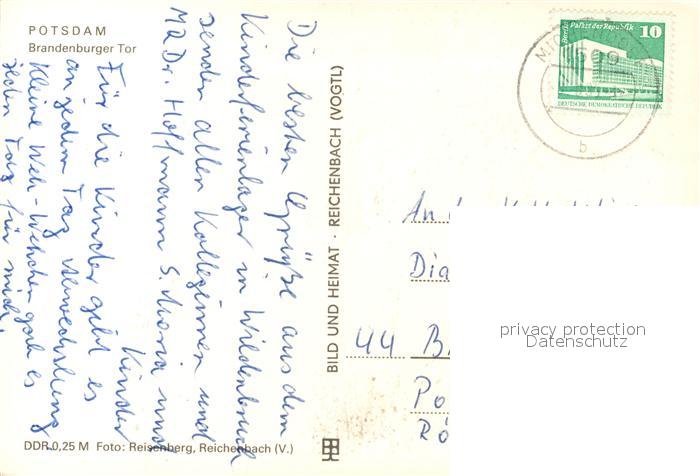 POTSDAM
Brandenburger Tor
Die besten Grüße aus dem
Kinderferienlager in Wildenbruch
senden allen Kolleginnen und
MR Dr. Hoffmann S. Maria und
Kinder
Für die Kinder gibt es
an jedem Tag Abwechslung
Kleine Weh-Wehchen gab es
jeden Tag für mich.
BILD UND HEIMAT · REICHENBACH (VOGTL)
DDR 0,25 M Foto: Reisenberg, Reichenbach (V.)
Berlin Palast der Republik 10
DEUTSCHE DEMOKRATISCHE REPUBLIK
b
An
Dia
44 B
Po
Rö
privacy protection
Datenschutz